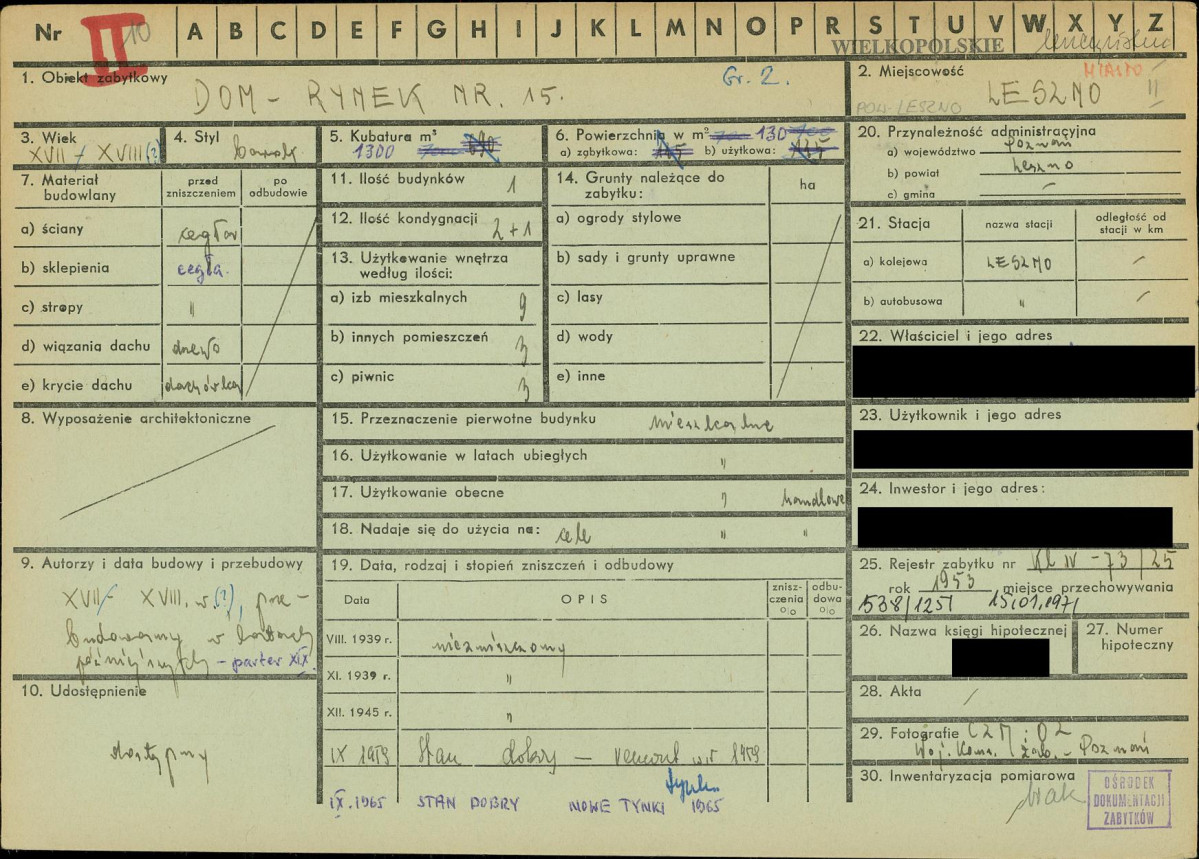 Nr II 10 A B C D E F G H I J K L M N O P R S T U V W X Y Z
WIELKOPOLSKIE
1. Obiekt zabytkowy
DOM – RYNEK NR. 15.
Gr. 2.
2. Miejscowość
MIASTO
POW. LESZNO LESZNO II
3. Wiek
XVII / XVIII (?)
4. Styl
barok
5. Kubatura m³
1300
6. Powierzchnia w m² 130
a) zabytkowa: b) użytkowa:
20. Przynależność administracyjna
a) województwo Poznań
b) powiat Leszno
c) gmina –
7. Materiał budowlany
przed zniszczeniem
po odbudowie
a) ściany cegła
b) sklepienia cegła
c) stropy "
d) wiązania dachu drewo
e) krycie dachu dachówka
11. Ilość budynków 1
12. Ilość kondygnacji 2+1
13. Użytkowanie wnętrza
według ilości:
a) izb mieszkalnych 9
b) innych pomieszczeń 3
c) piwnic 3
14. Grunty należące do
zabytku:
ha
a) ogrody stylowe
b) sady i grunty uprawne
c) lasy
d) wody
e) inne
21. Stacja
nazwa stacji
odległość od
stacji w km
a) kolejowa LESZNO –
b) autobusowa " –
22. Właściciel i jego adres
23. Użytkownik i jego adres
24. Inwestor i jego adres:
8. Wyposażenie architektoniczne
15. Przeznaczenie pierwotne budynku mieszkalne
16. Użytkowanie w latach ubiegłych "
17. Użytkowanie obecne " handlowe
18. Nadaje się do użycia na: cele " "
9. Autorzy i data budowy i przebudowy
XVII/XVIII. w. (?), prze-
budowany w latach
późniejszych – parter XIX.
19. Data, rodzaj i stopień zniszczeń i odbudowy
Data
OPIS
znisz-
czenia
o|o
odbu-
dowa
o|o
VIII. 1939 r. niezniszczony
XI. 1939 r. "
XII. 1945 r. "
IX 1959 Stan dobry – remont w r 1959
IX. 1965 STAN DOBRY NOWE TYNKI 1965
10. Udostępnienie
dostępny
25. Rejestr zabytku nr Kl IV – 73/25
rok 1953 miejsce przechowywania
538/1251 15.01.1971
26. Nazwa księgi hipotecznej
27. Numer
hipoteczny
28. Akta /
29. Fotografie CZM i OZ
Woj. Kons. Zab. – Poznań
30. Inwentaryzacja pomiarowa
brak
OŚRODEK
DOKUMENTACJI
ZABYTKÓW